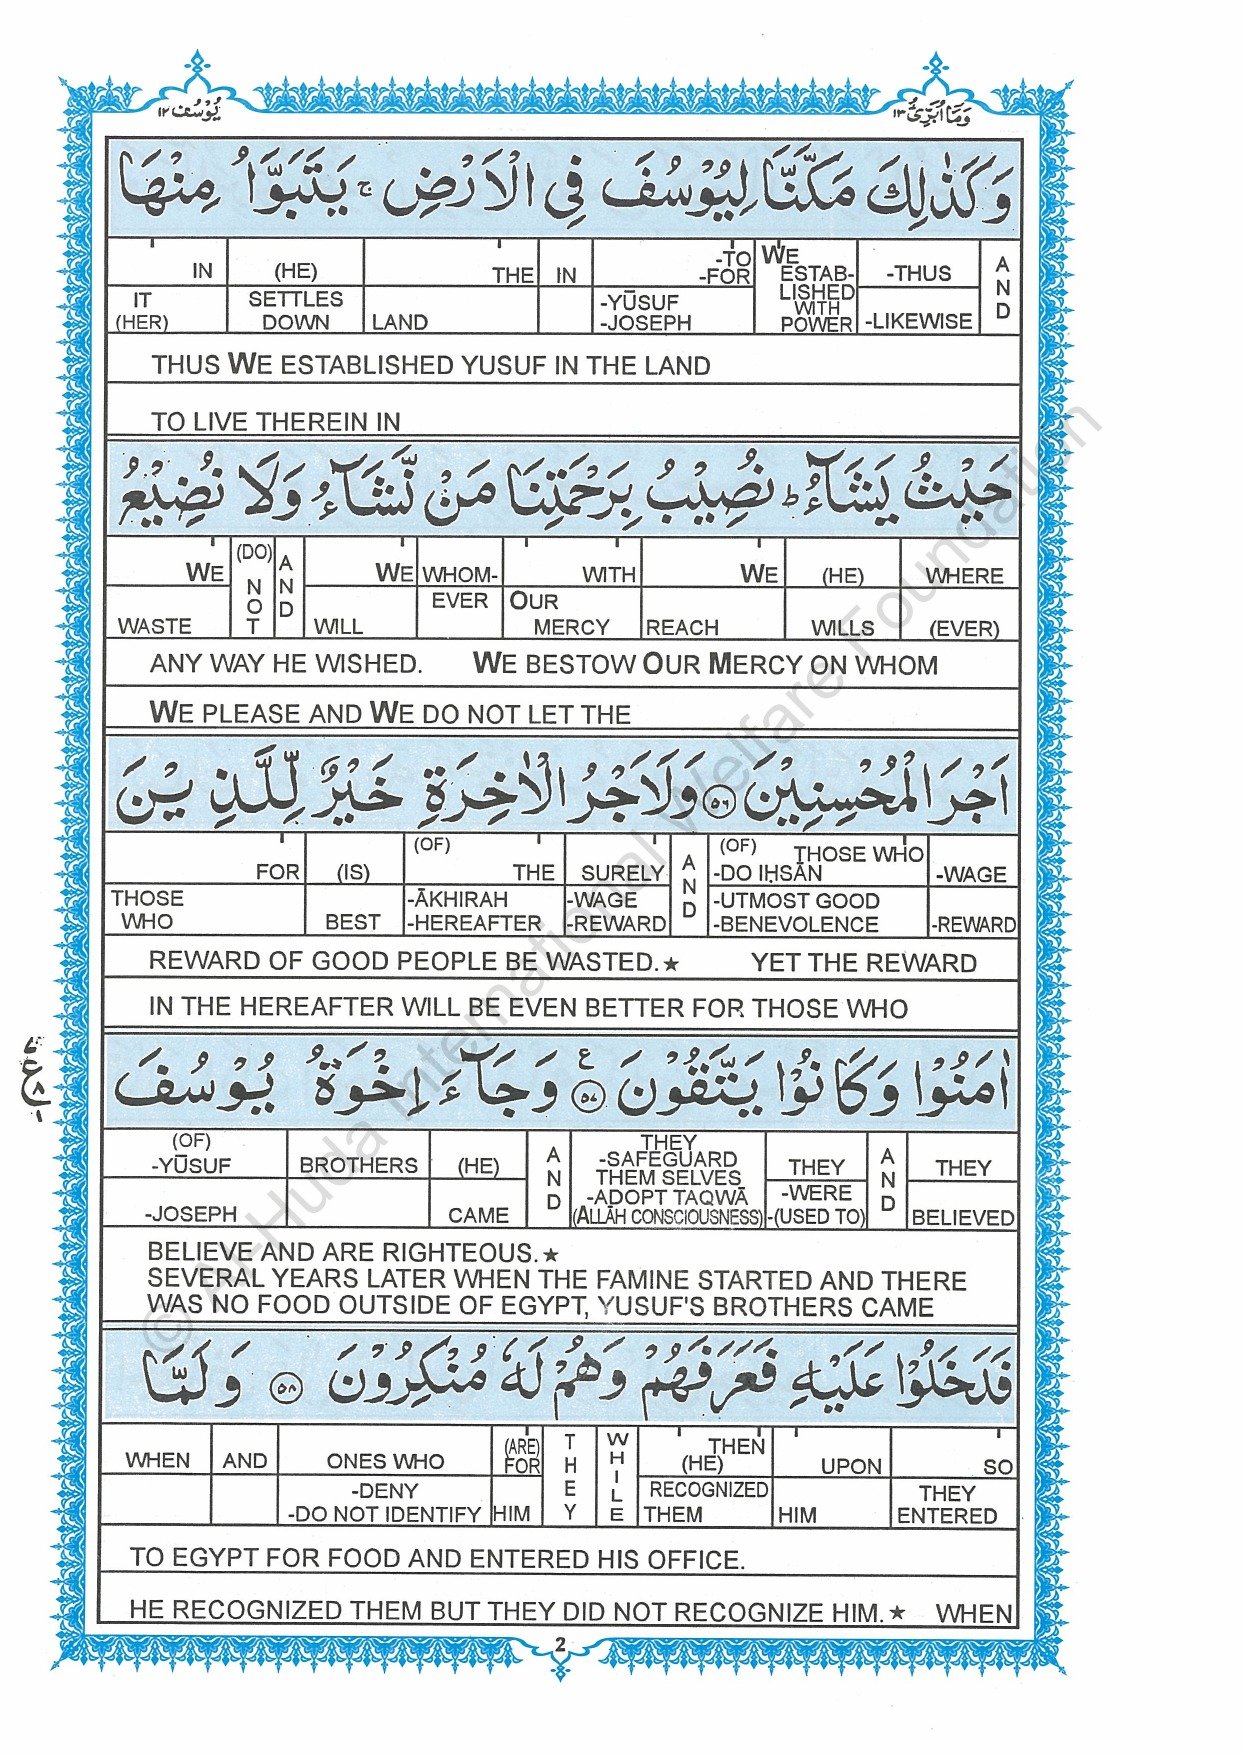 وَمَآ اُبَرِّئُ ١٣
یُوْسُف ١٢
وَكَذٰلِكَ مَكَّنَّا لِيُوْسُفَ فِي الْاَرْضِ ۚ يَتَبَوَّاُ مِنْهَا
AND -THUS -LIKEWISE WE ESTAB-LISHED WITH POWER -TO -FOR -YŪSUF -JOSEPH IN THE LAND (HE) SETTLES DOWN IN IT (HER)
THUS WE ESTABLISHED YUSUF IN THE LAND
TO LIVE THEREIN IN
حَيْثُ يَشَآءُ ؕ نُصِيْبُ بِرَحْمَتِنَا مَنْ نَّشَآءُ وَلَا نُضِيْعُ
WHERE (EVER) (HE) WILLS WE REACH WITH OUR MERCY WHOM-EVER WE WILL AND (DO) NOT WE WASTE
ANY WAY HE WISHED. WE BESTOW OUR MERCY ON WHOM
WE PLEASE AND WE DO NOT LET THE
اَجْرَ الْمُحْسِنِيْنَ ﴿٥٦﴾ وَلَاَجْرُ الْاٰخِرَةِ خَيْرٌ لِّلَّذِيْنَ
-WAGE -REWARD (OF) THOSE WHO -DO IḤSĀN -UTMOST GOOD -BENEVOLENCE AND SURELY -WAGE -REWARD (OF) THE -ĀKHIRAH -HEREAFTER (IS) BEST FOR THOSE WHO
REWARD OF GOOD PEOPLE BE WASTED.★ YET THE REWARD
IN THE HEREAFTER WILL BE EVEN BETTER FOR THOSE WHO
اٰمَنُوْا وَكَانُوْا يَتَّقُوْنَ ﴿٥٧﴾ ع وَجَآءَ اِخْوَةُ يُوْسُفَ
THEY BELIEVED AND THEY -WERE -(USED TO) THEY -SAFEGUARD THEM SELVES -ADOPT TAQWĀ (ALLĀH CONSCIOUSNESS) AND (HE) CAME BROTHERS (OF) -YŪSUF -JOSEPH
BELIEVE AND ARE RIGHTEOUS.★
SEVERAL YEARS LATER WHEN THE FAMINE STARTED AND THERE
WAS NO FOOD OUTSIDE OF EGYPT, YUSUF'S BROTHERS CAME
فَدَخَلُوْا عَلَيْهِ فَعَرَفَهُمْ وَهُمْ لَهٗ مُنْكِرُوْنَ ﴿٥٨﴾ وَلَمَّا
SO THEY ENTERED UPON HIM THEN (HE) RECOGNIZED THEM WHILE THEY (ARE) FOR HIM ONES WHO -DENY -DO NOT IDENTIFY AND WHEN
TO EGYPT FOR FOOD AND ENTERED HIS OFFICE.
HE RECOGNIZED THEM BUT THEY DID NOT RECOGNIZE HIM.★ WHEN
2
© Al-Huda International Welfare Foundation